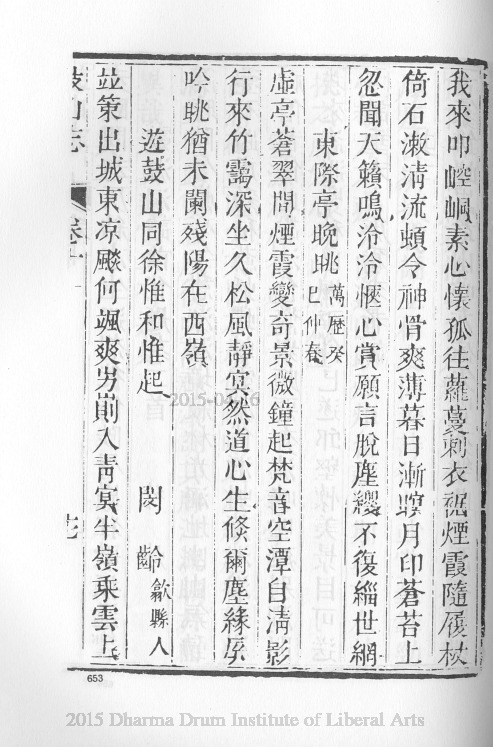 我來叩崆峒素心懷孤往蘿蔓刺衣裾煙霞隨履杖
倚石漱淸流頓令神骨爽薄暮日漸暝月印蒼苔上
忽聞天籟鳴泠泠愜心賞願言脫塵纓不復緇世網
東際亭晚眺 萬歷癸巳仲春
虛亭蒼翠間煙霞變奇景微鐘起梵音空潭自淸影
行來竹靄深坐久松風靜冥然道心生倏爾塵緣屏
吟眺猶未闌殘陽在西嶺
遊鼓山同徐惟和惟起 閔齡 歙縣人
竝策出城東凉飈何颯爽屴崱入靑冥半嶺乘雲上
鼓山志 卷十
653
2015-03-16
2015 Dharma Drum Institute of Liberal Arts